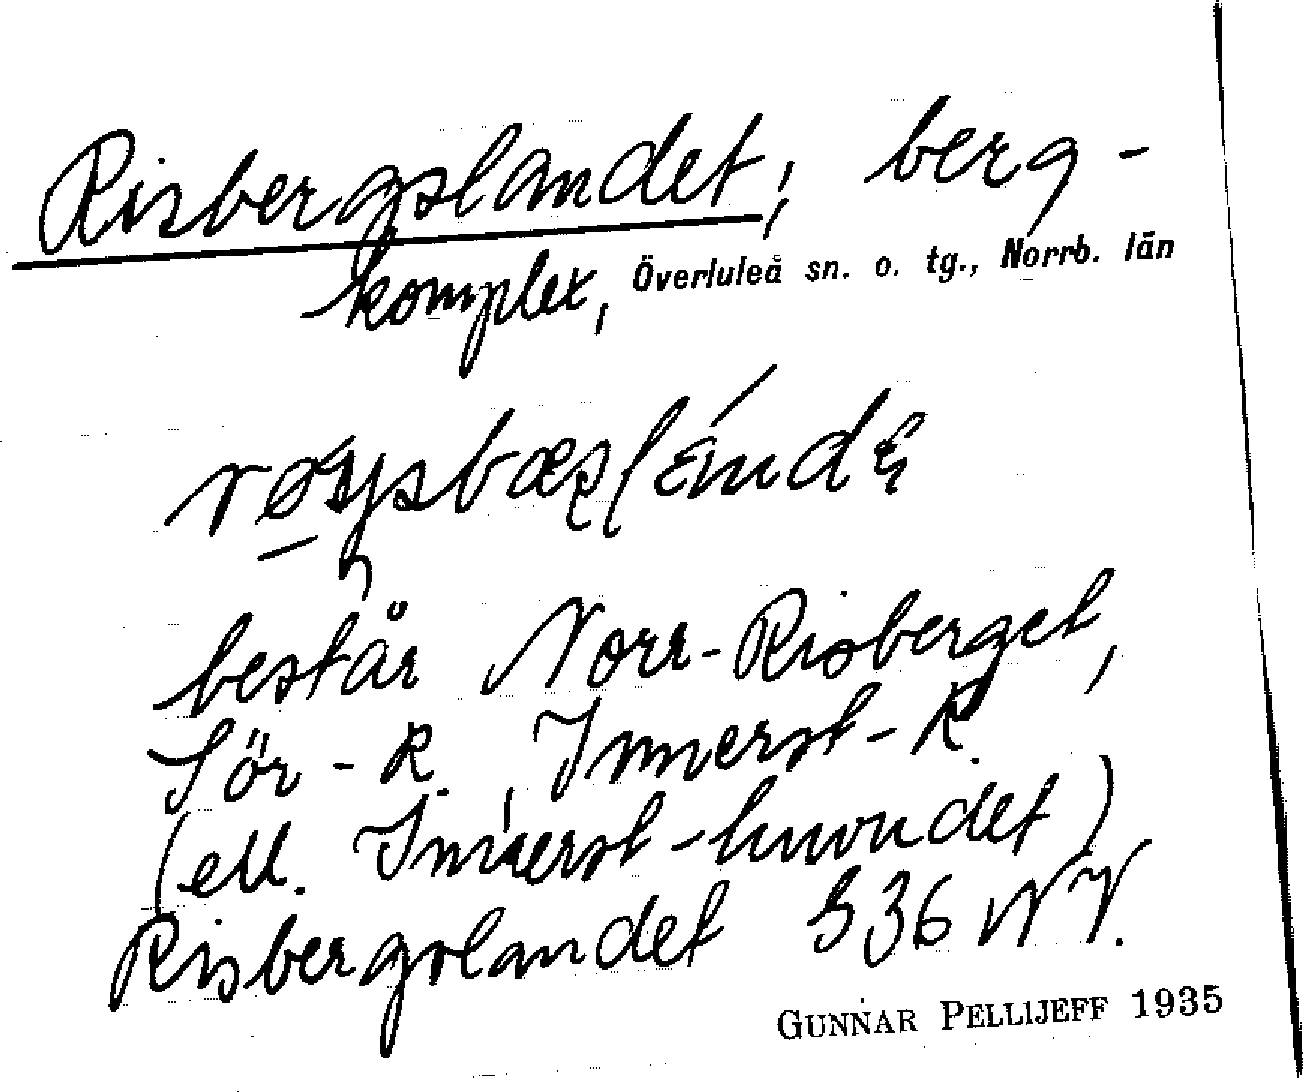 Risbergslandet, berg-
komplex, Överluleå sn. o. tg., Norrb. län
består Norr-Risberget,
Sör-R., Innerst-R.
(ell. Innerst-huvudet)
Risbergslandet S36 NV.
GUNNAR PELLIJEFF 1935